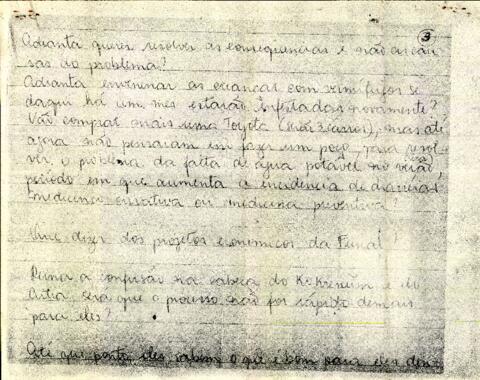 3
Adianta querer resolver as consequencias e não as cau
sas do problema?
Adianta envenenar as crianças com vermifugos se
daqui há um mês estarão infestadas novamente?
Vão comprar mais uma Toyota (mais 3 carros), mas até
agora não pensaram em fazer um poço para resol
ver o problema da falta de água potável no verão,
período em que aumenta a incidencia de diarreias
medicina curativa ou medicina preventiva?
Que dizer dos projetos economicos da Funai?
a confusão na cabeça do Kokrenum e do
será que o processo não foi rápido demais
para eles?
Até que ponto eles sabem o que é bom para eles den